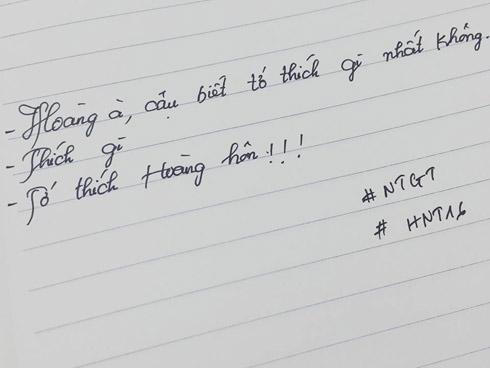 - Hoàng à, cậu biết tớ thích gì nhất không.
- Thích gì
- Tớ thích Hoàng hôn!!!
#NTGT
# HNT16